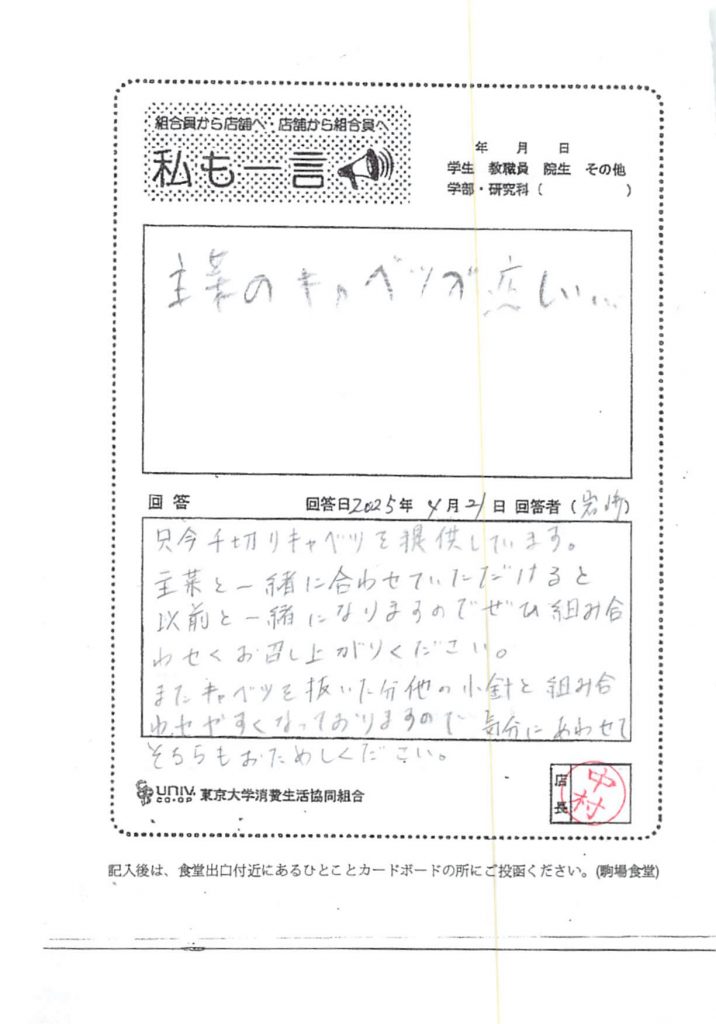 組合員から店舗へ・店舗から組合員へ
私も一言
年 月 日
学生 教職員 院生 その他
学部・研究科（ ）
主菜のキャベツが恋しい...
回答 回答日2025年4月21日 回答者（岩崎）
只今千切りキャベツを提供しています。
主菜と一緒に合わせていただけると
以前と一緒になりますのでぜひ組み合
わせてお召し上がりください。
またキャベツを抜いた分他の小鉢と組み合
わせやすくなっておりますので気分にあわせて
そちらもおためしください。
店長 中村
UNIV. CO-OP 東京大学消費生活協同組合
記入後は、食堂出口付近にあるひとことカードボードの所にご投函ください。(駒場食堂)